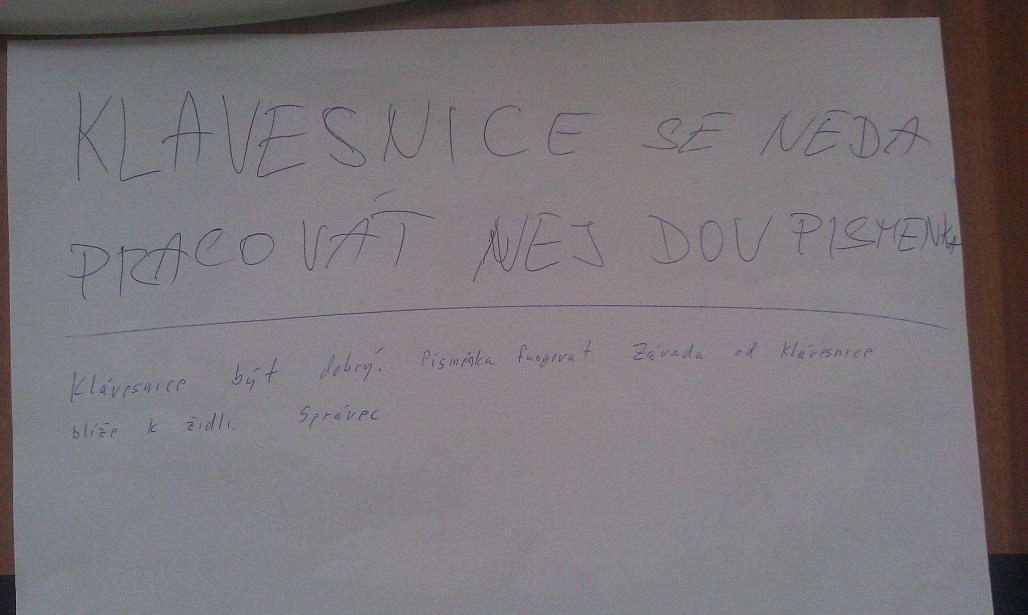 KLAVESNICE SE NEDA
PRACOVÁT NEJ DOU PISMENKA
Klávesnice být dobrý. Písménka fungovat Závada od klávesnice
blíže k židli. Správec